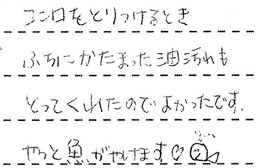 コンロをとりつけるとき
ふちにかたまった油汚れも
とってくれたのでよかったです.
やっと魚がやけます♡